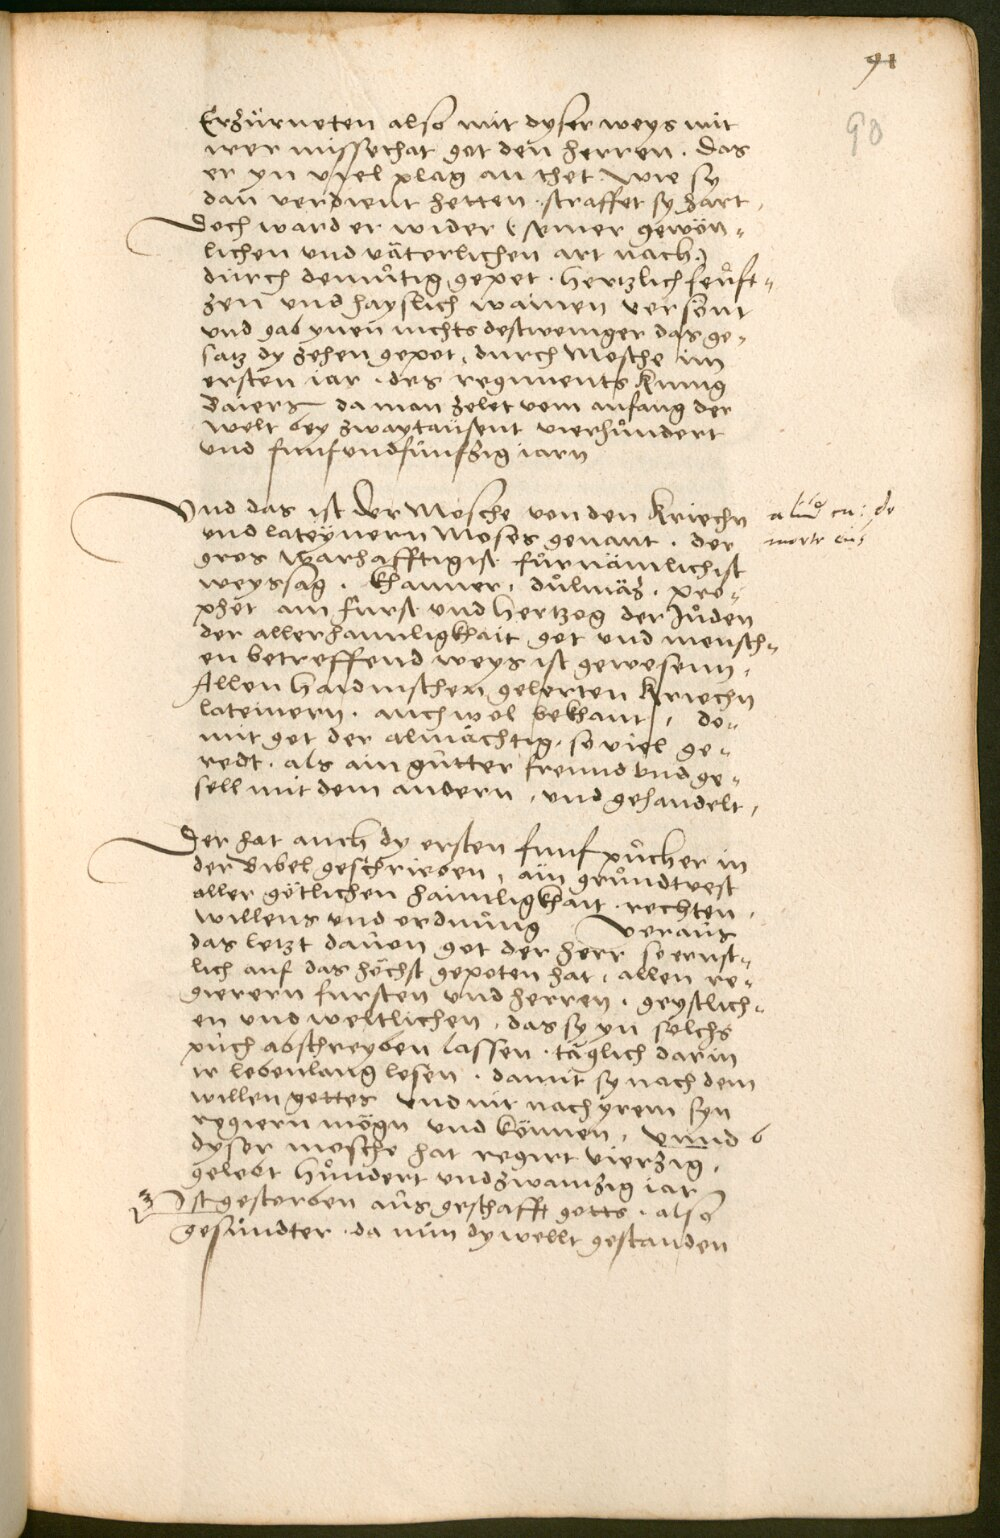 91
90
Erzürneten also mit dyser weys mit
irer missethat got den herren . Das
er yn viel plag an thet wie sy
dan verdient hetten . straffet sy hart ,
Doch ward er wider ( seiner gewön„
lichen und väterlichen art nach )
durch demůtig gepet . hertzlich seuͦft„
zen und hayslich wainen versont
und gab ynen nichts destweniger das ge„
satz dy zehen gepot , durch Mosche im
ersten iar . des regiments Kunig
Baiers da man zelet vom anfang der
welt bey zwaytausent vierhůndert
und funfundfunfzig iarn
Und das ist der Mosche von den Kriechn
und lateynern Moses genant . der
gros warhafftigist fůrnämlichist
weyssag . khanner , důlmäz . pro„
phet ain fürst und hertzog der Juͦden
der allerhaimligkhait got und mensch„
en betreffend weys ist gewesenn ,
Allen haidnischen gelerten Kriechn
lateinern . auch wol bekhant , do„
mit got der almächtig . so viel ge„
redt . als ain gůtter freund und ge„
sell mit dem andern , und gehandelt ,
aliud ca: de
morte eius
Der hat auch dy ersten funf půcher in
der Bibel geschrieben , ain grůndtvest
aller götlichen haimligkhait . rechten ,
willens und ordnung Voraus
das letzt davon got der herr so ernst„
lich auf das höchst gepoten hat , allen re„
gierern fursten und herren . geystlich„
en und weltlichen , das sy yn solchs
půch abschreyben lassen . täglich darin
ir lebenlang lesen . damit sy nach dem
willen gottes und nit nach yrem syn
regiern mögn und können , Unnd
dyser mosche hat regirt vierzig ,
gelebt hůndert und zwainzig iar
Ist gestorben aus geschafft gotts . also
gesundter . da nun dy wellt gestanden